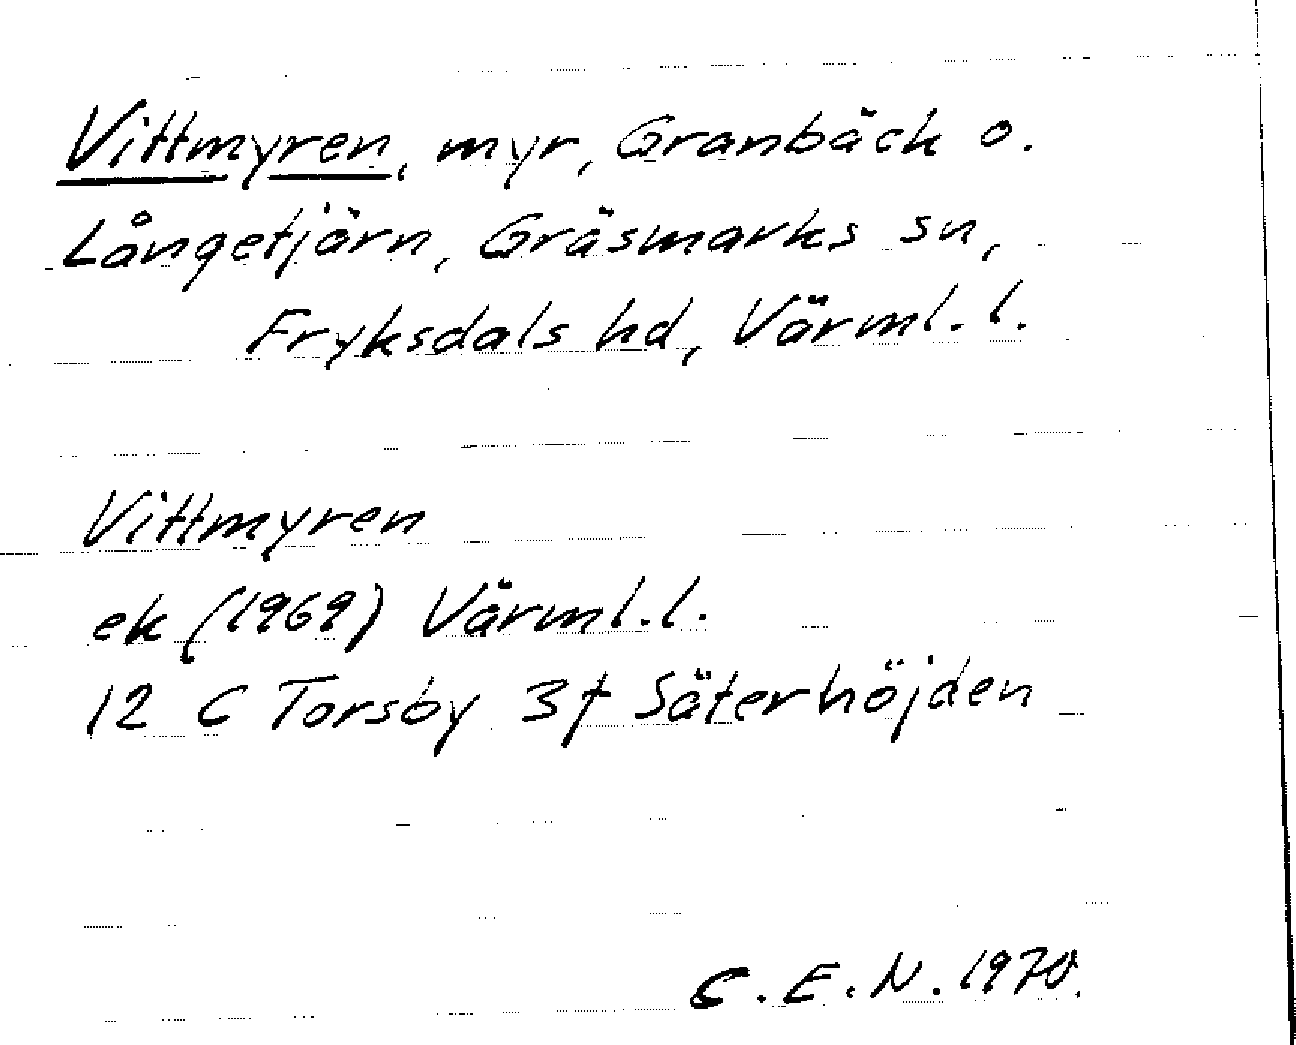 Vittmyren, myr, Granbäck o.
Långetjärn, Gräsmarks sn,
Fryksdals hd, Värml. l.
Vittmyren
ek (1969) Värml. l.
12 C Torsby 3f Säterhöjden
C. E. N. 1970.